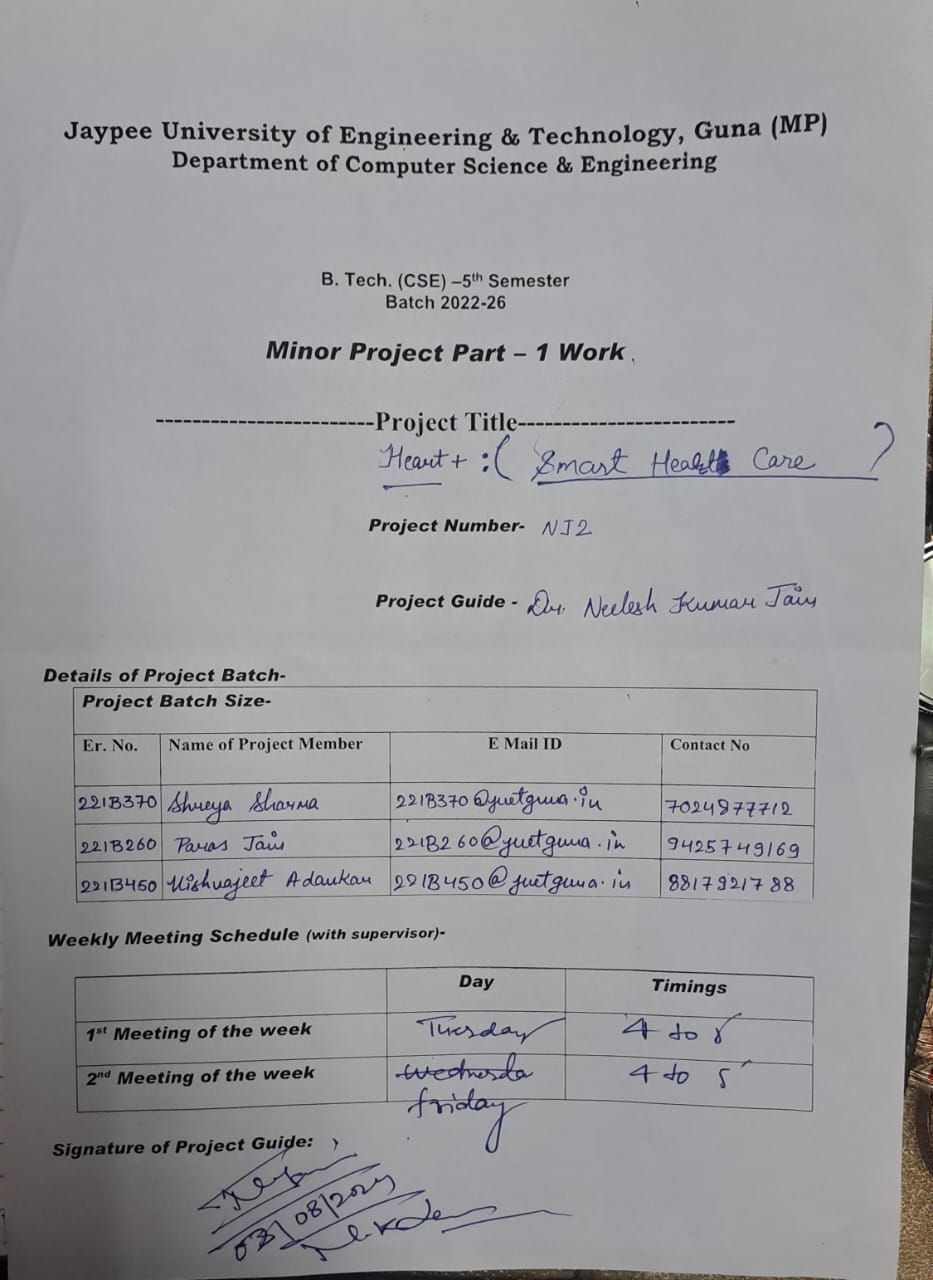 Jaypee University of Engineering & Technology, Guna (MP)
Department of Computer Science & Engineering
B. Tech. (CSE) –5th Semester
Batch 2022-26
Minor Project Part – 1 Work
------------------------Project Title------------------------
Heart+ :( Smart Health Care )
Project Number- NJ2
Project Guide - Dr. Neelesh Kumar Jain
Details of Project Batch-
Project Batch Size-
Er. No. Name of Project Member E Mail ID Contact No
221B370 Shreya Sharma 221B370@juetguna.in 7024977712
221B260 Paras Jain 221B260@juetguna.in 9425749169
221B450 Vishvajeet 221B450@juetguna.in 8817921788
Weekly Meeting Schedule (with supervisor)-
Day Timings
1st Meeting of the week Tuesday 4 to
2nd Meeting of the week Wednesda 4 to 5
friday
Signature of Project Guide:
08/2024